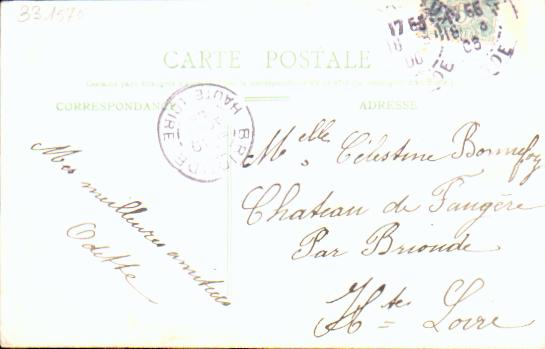 33.1570
CARTE POSTALE
CORRESPONDANCE
ADRESSE
BRIOUDE
HAUTE LOIRE
Mes meilleures amitiés
Odette
Melle Célestine Bonnefoy
Chateau de Faugère
Par Brioude
Hte Loire